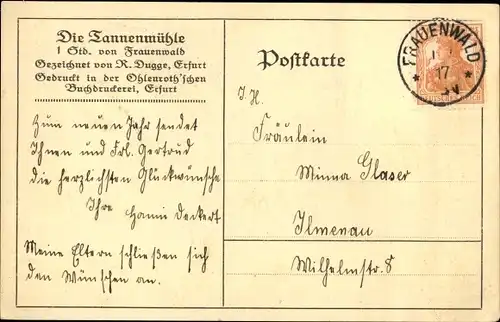 Die Tannenmühle
1 Std. von Frauenwald
Gezeichnet von R. Dugge, Erfurt
Gedruckt in der Ohlenroth'schen
Buchdruckerei, Erfurt
Postkarte
FRAUENWALD
17
Zum neuen Jahr sendet
Ihnen und Frl. Gertrud
die herzlichsten Glückwünsche
Ihre Hanni Deckert
Meine Eltern schließen sich
den Wünschen an.
I. H.
Fräulein
Minna Glaser
Ilmenau
Wilhelmstr. 8